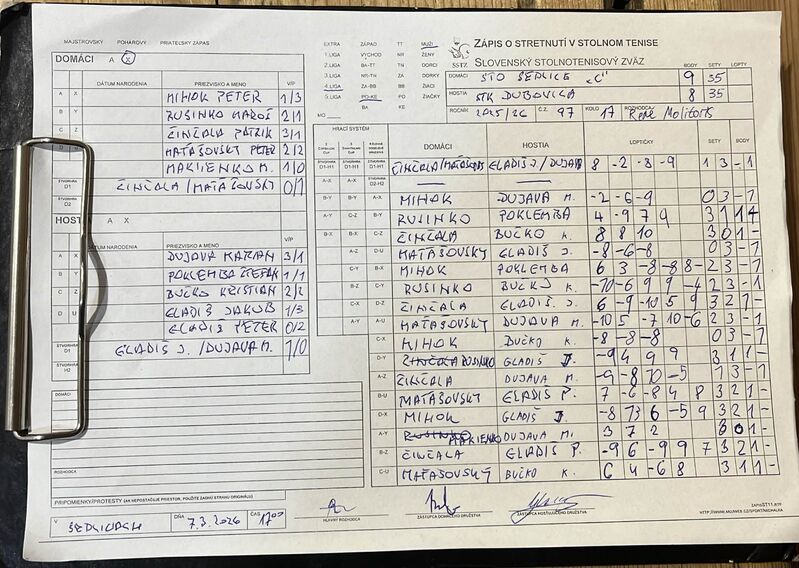 MAJSTROVSKÝ POHÁROVÝ PRIATEĽSKÝ ZÁPAS
DOMÁCI A X
DÁTUM NARODENIA PRIEZVISKO A MENO V/P
A X MIHOK PETER 1/3
B Y RUSINKO MAROŠ 2/1
C Z ČINČALA PATRIK 3/1
D U MATAŠOVSKÝ PETER 2/2
MAKIENKO M. 1/0
ŠTVORHRA D1 ČINČALA/MATAŠOVSKÝ 0/1
ŠTVORHRA D2
HOSTIA A X
DÁTUM NARODENIA PRIEZVISKO A MENO V/P
A X DUJAVA MARIAN 3/1
B Y POKLEMBA ŠTEFAN 1/1
C Z BUČKO KRISTIAN 2/2
D U GLADIŠ JAKUB 1/3
GLADIŠ PETER 0/2
ŠTVORHRA D1 GLADIŠ J./DUJAVA M. 1/0
ŠTVORHRA H2
DOMÁCI
HOSTIA
ROZHODCA
PRIPOMIENKY/PROTESTY (AK NEPOSTAČUJE PRIESTOR, POUŽITE ZADNÚ STRANU ORIGINÁLU)
V SEDLICIACH DŇA 7.3.2026 ČAS 17 00
EXTRA ZÁPAD TT MUŽI
1.LIGA VÝCHOD NR ŽENY
2.LIGA BA-TT TN DORCI
3.LIGA NR-TN ZA DORKY
4.LIGA ZA-BB BB ŽIACI
5.LIGA PO-KE PO ŽIAČKY
BA KE
MO
SSTZ
ZÁPIS O STRETNUTÍ V STOLNOM TENISE
SLOVENSKÝ STOLNOTENISOVÝ ZVÄZ
BODY SETY LOPTY
DOMÁCI STO SEDLICE "C" 9 35
HOSTIA STK DUBOVICA 8 35
ROČNÍK 2025/26 Č.Z. 97 KOLO 17 ROZHODCA
HRACÍ SYSTÉM
DOMÁCI HOSTIA LOPTIČKY SETY BODY
ČINČALA/MATAŠOVSKÝ GLADIŠ J./DUJAVA 8 -2 -8 -9 1 3 - 1
B-Y A-X B-Y MIHOK DUJAVA M. -2 -6 -9 0 3 - 1
A-Y C-Z B-Y RUSINKO POKLEMBA 4 -9 7 9 3 1 1 -
B-X B-X C-Z ČINČALA BUČKO K. 8 8 10 3 0 1 -
A-Z D-U MATAŠOVSKÝ GLADIŠ J. -8 -6 -8 0 3 - 1
C-Y B-X MIHOK POKLEMBA 6 3 -8 -8 -8 2 3 - 1
B-Z C-Y RUSINKO BUČKO K. -10 -6 9 9 -4 2 3 - 1
C-X D-Z ČINČALA GLADIŠ J. 6 -9 -10 5 9 3 2 1 -
A-Y A-U MATAŠOVSKÝ DUJAVA M. -10 5 -7 10 -6 2 3 - 1
C-X MIHOK BUČKO K. -8 -8 -8 0 3 - 1
D-Y RUSINKO GLADIŠ J. -9 4 9 9 3 1 1 -
A-Z ČINČALA DUJAVA M. -9 -8 10 -5 1 3 - 1
B-U MATAŠOVSKÝ GLADIŠ P. 7 -6 -8 4 8 3 2 1 -
D-X MIHOK GLADIŠ J. -8 13 6 -5 9 3 2 1 -
A-Y MAKIENKO DUJAVA M. 3 7 2 3 0 1 -
B-Z ČINČALA GLADIŠ P. -9 6 -9 9 7 3 2 1 -
C-U MATAŠOVSKÝ BUČKO K. 6 4 -6 8 3 1 1 -
HLAVNÝ ROZHODCA ZÁSTUPCA DOMÁCEHO DRUŽSTVA ZÁSTUPCA HOSŤUJÚCEHO DRUŽSTVA